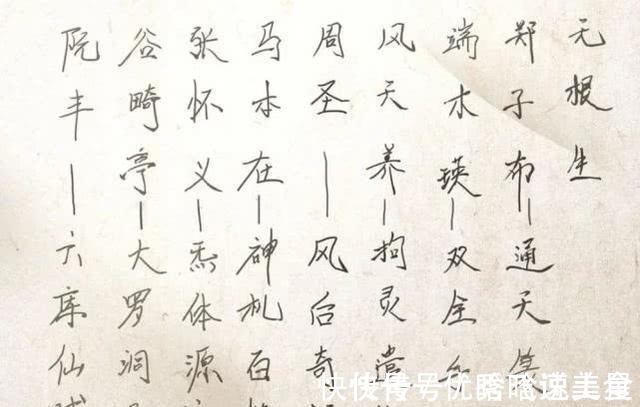 无根生
郑子布—通天箓
端木瑛—双全
风天养—拘灵
周圣—风后奇
马本在—神机百
张怀义—炁体源
谷畸亭—大罗洞
阮丰—六库仙